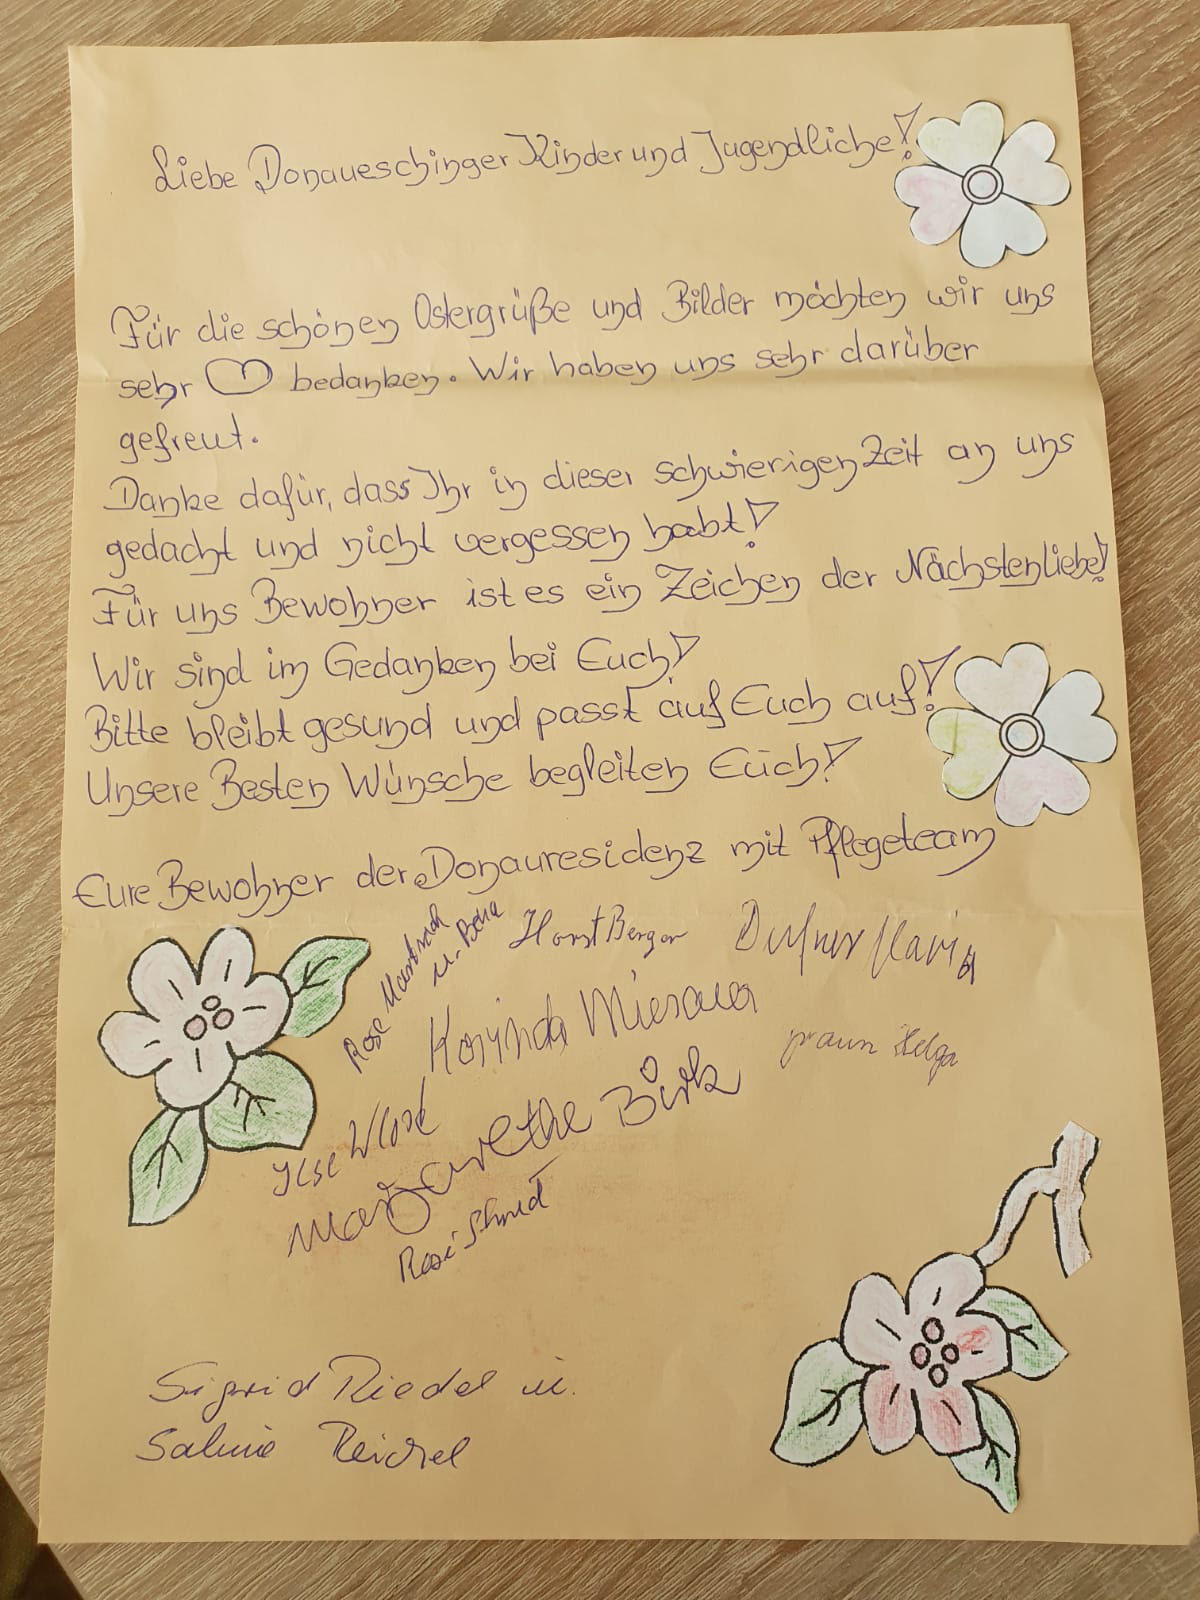 Liebe Donaueschinger Kinder und Jugendliche!
Für die schönen Ostergrüße und Bilder möchten wir uns
sehr bedanken. Wir haben uns sehr darüber
gefreut.
Danke dafür, dass Ihr in dieser schwierigen Zeit an uns
gedacht und nicht vergessen habt!
Für uns Bewohner ist es ein Zeichen der Nächstenliebe!
Wir sind im Gedanken bei Euch!
Bitte bleibt gesund und passt auf Euch auf!
Unsere Besten Wünsche begleiten Euch!
Eure Bewohner der Donauresidenz mit Pflegeteam
Rose
Horst Berger
Maria
Korinda
Helga
Ilse
Margarethe Birk
Rosi
Sigrid Riedel u.
Sabine Reichel